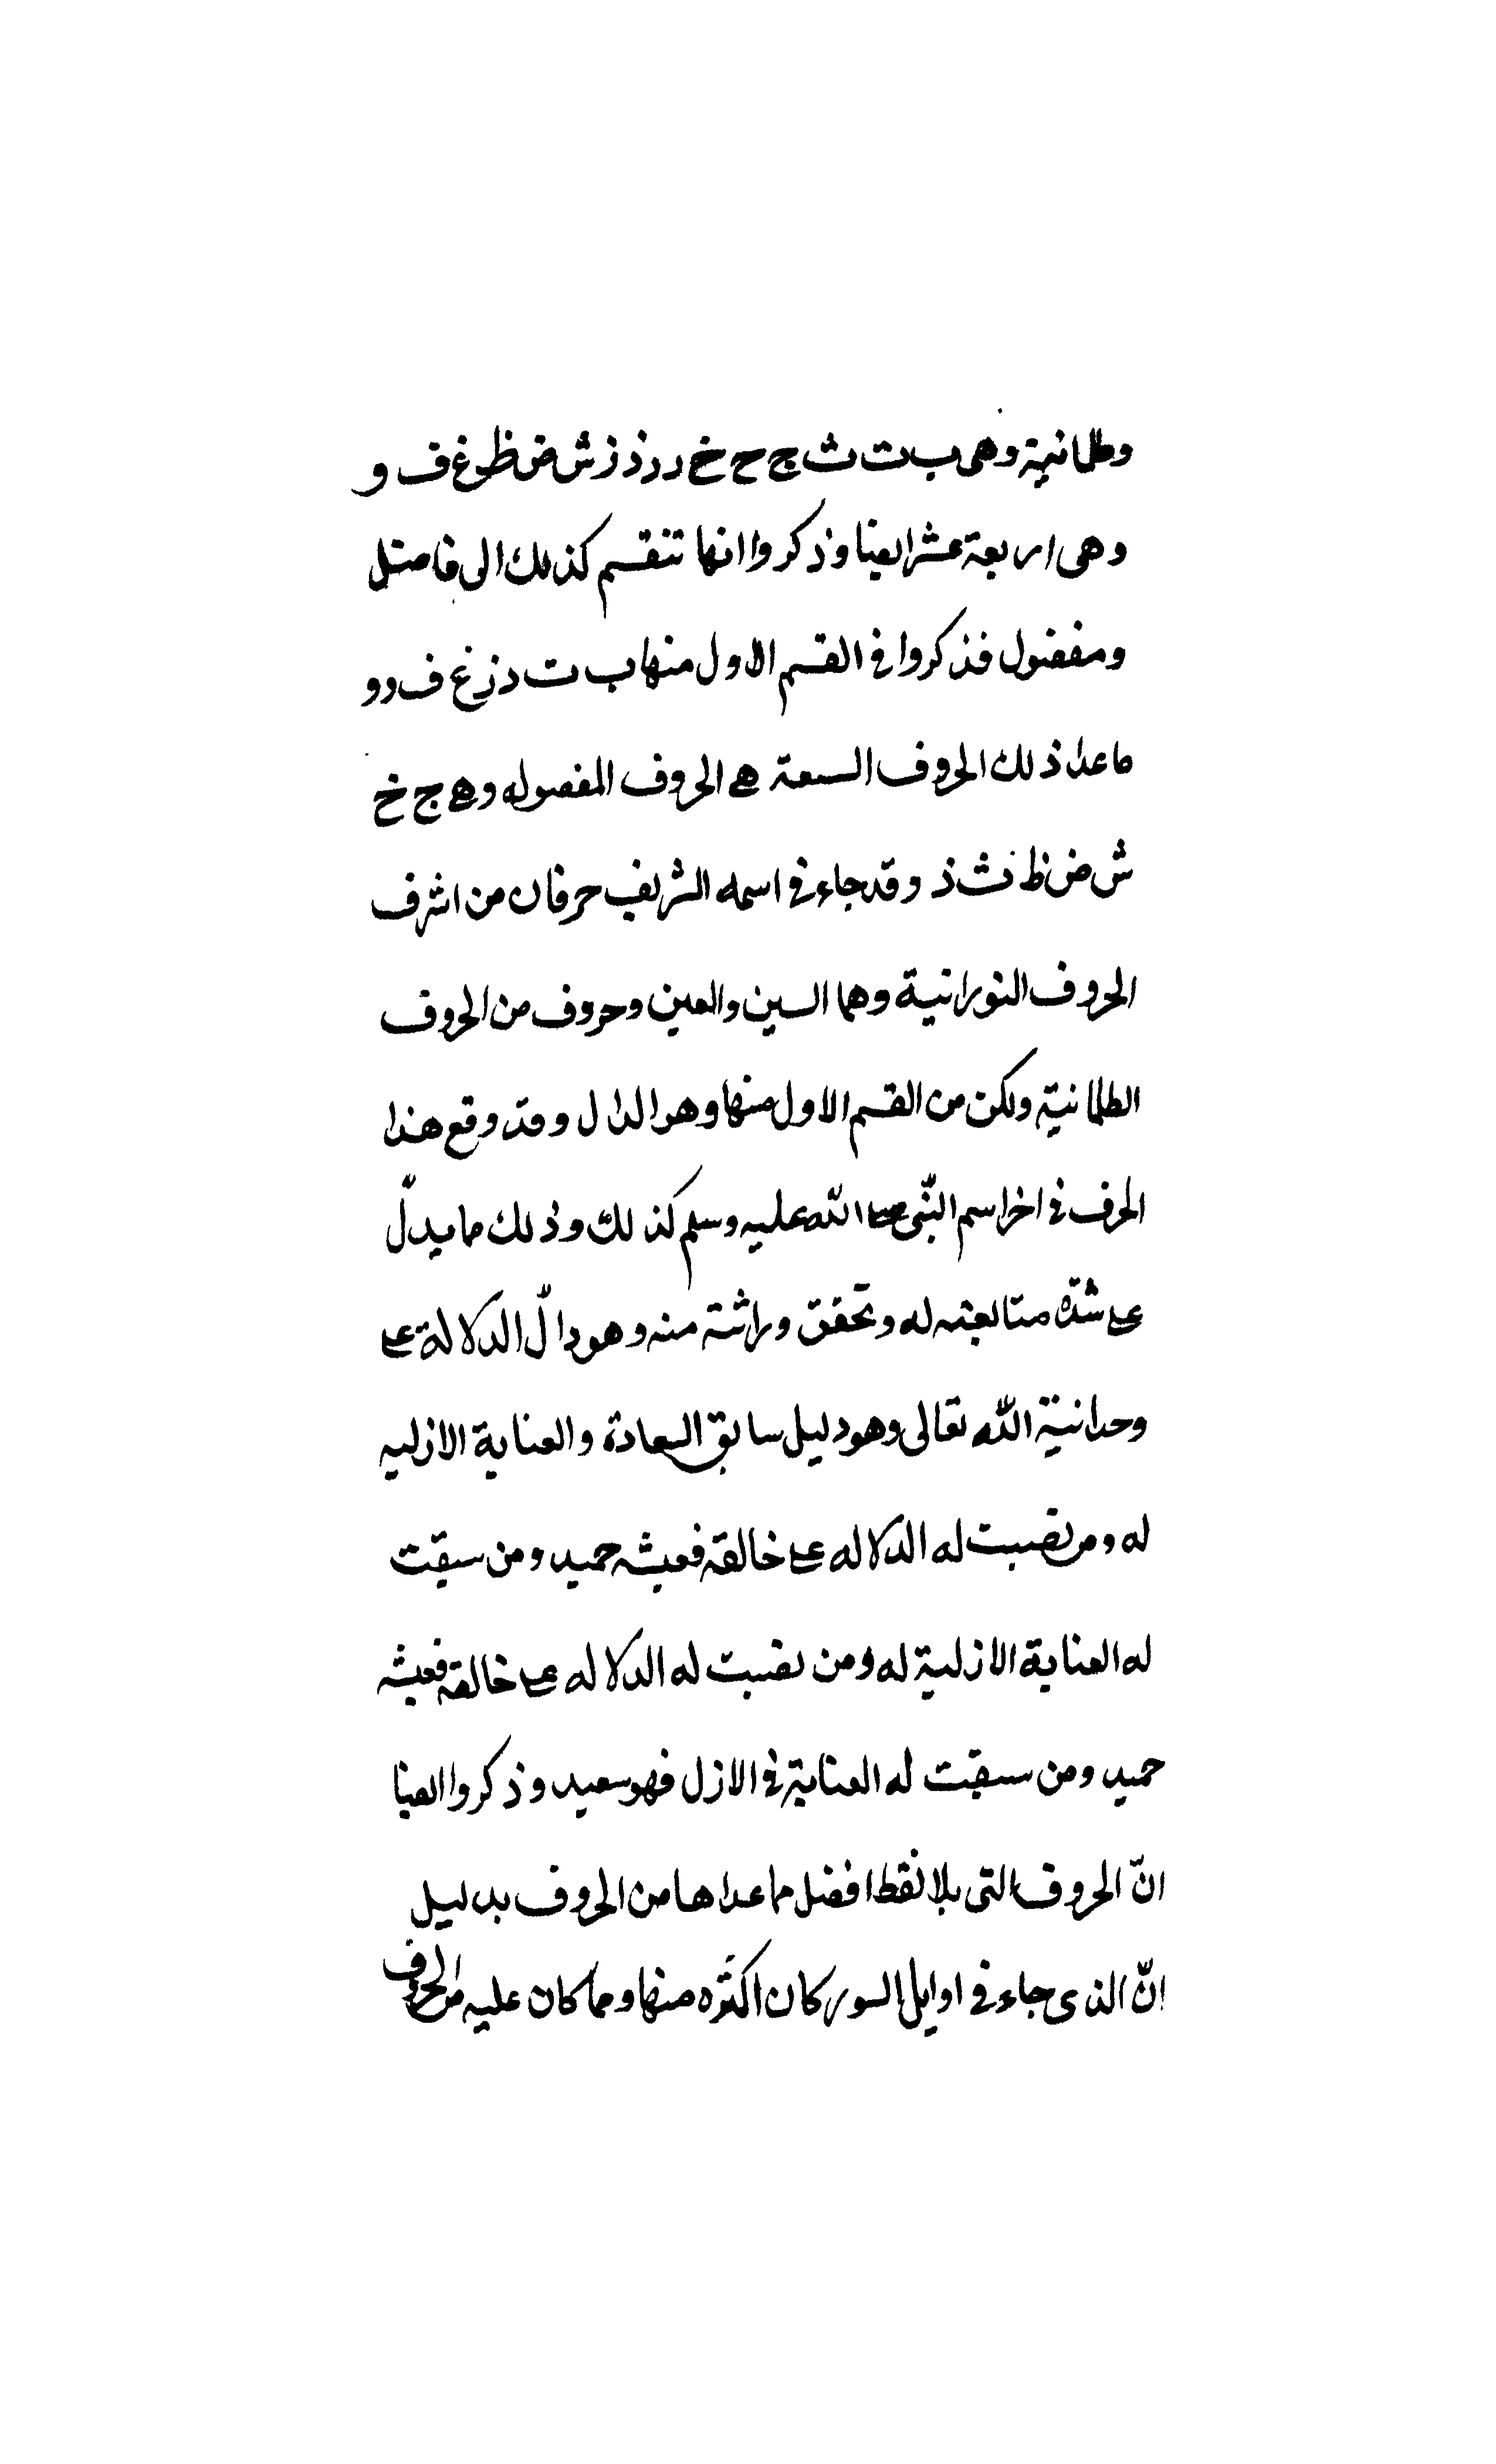 وظلمانية وهى ب ت ث ج ح خ د ر ذ ز ش ض ظ غ ف و
وهى اربعة عشر ايضا وذكروا انها تنقسم كذلك الى فاضل
ومفضول فذكروا فى القسم الاول منها ب ت د ز غ ف و و
ما عدا ذلك الحروف السبعة هى الحروف المفضوله وهى ج خ
ش ض ظ ث ذ وقد جاء فى اسمه الشريف حرفان من اشرف
الحروف النورانية وهما السين والعين وحروف من الحروف
الظلمانية ولكن من القسم الاول منها وهو الدال وقد وقع هذا
الحرف فى اخر اسم النّبى صلى الله عليه وسلم كذلك وذلك مما يدلّ
على شدّة متابعته له وتحقق وراثته منه وهو دالّ الدلالة على
وحدانية الله تعالى وهو دليل سابق السعادة والعناية الازليه
له ومن نصبت له الدلاله على خالقه فعيشه حميد ومن سبقت
له العناية الازلية له ومن نصبت له الدلاله على خالقه فعيشه
حميد ومن سبقت له العناية فى الازل فهو سعيد وذكروا ايضا
انّ الحروف التى بلا نقط افضل مما عداها من الحروف بدليل
انّ الذى جاء فى اوايل السور كان اكثره منها ومما كان عليه من الحروف